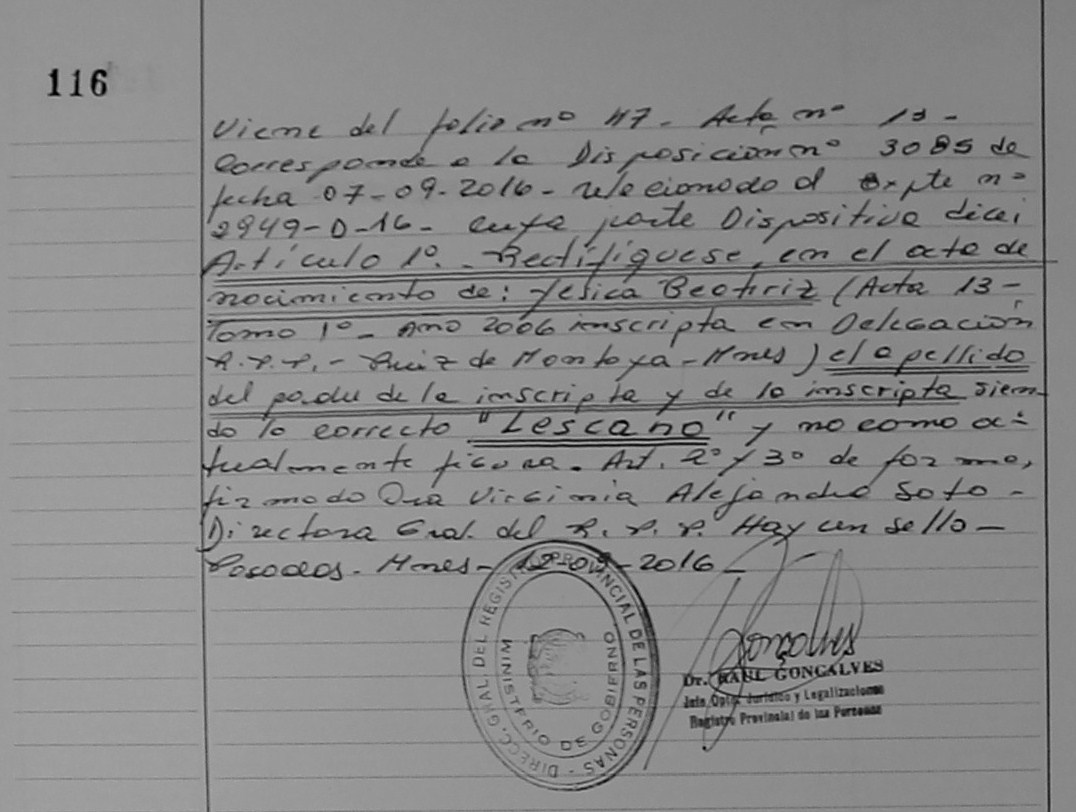 116
Viene del folio nº 47. Acta nº 13 -
Corresponde a la Disposición nº 3085 de
fecha 07-09-2016 - relacionado al Expte nº
2949-D-16 - cuya parte Dispositiva dice:
Artículo 1º. - Rectifíquese, en el acta de
nacimiento de: Yesica Beatriz (Acta 13 -
Tomo 1º - Año 2006 inscripta en Delegación
R.P.P. - Ruiz de Montoya - Mnes) el apellido
del padre de la inscripta y de la inscripta sien-
do lo correcto "Lescano" y no como ac-
tualmente figura. Art. 2º y 3º de forma,
firmado Dra Virginia Alejandra Soto -
Directora Gral. del R. P. P. Hay un sello -
Posadas. Mnes - 12-09-2016 -
DIRECC. GRAL. DEL REGISTRO PROVINCIAL DE LAS PERSONAS -
MINISTERIO DE GOBIERNO
Goncalves
Dr. RAUL GONCALVES
Jefe Dpto. Jurídico y Legalizaciones
Registro Provincial de las Personas